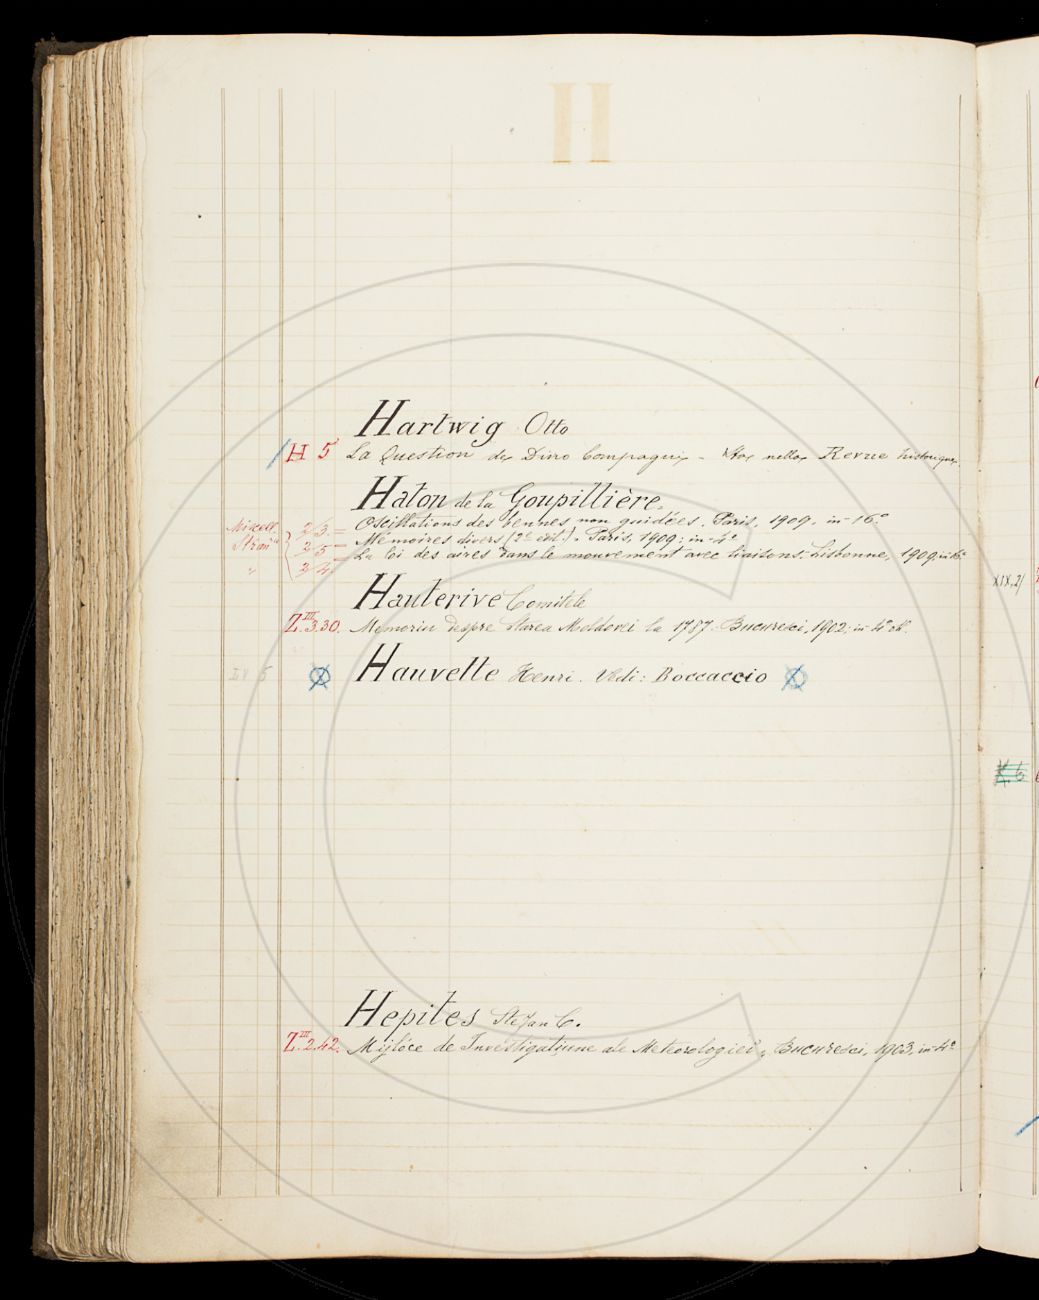 H
Hartwig Otto
H 5 La Question de Dino Compagni - Sta nella Revue historique.
Haton de la Goupillière.
Miscell. 2/3 = Oscillations des bennes non guidées. Paris, 1909. in-16º
Stran. 2/5 - Mémoires divers (2e edit.). Paris, 1909; in-4º
" 2/4 - La loi des aires dans le mouvement avec liaisons. Lisbonne, 1909. in
Hauterive Comitele
Z.III.3.30. Memoriu despre Starea Moldovei la 1787. Bucuresci, 1902; in-4º
Hauvette Henri. Vedi: Boccaccio
Hepites Stefan C.
Z.III.2.42. Mijlóce de Investigatiune ale Meteorologiei, Bucuresci, 1903, in-4º
XIX,2/